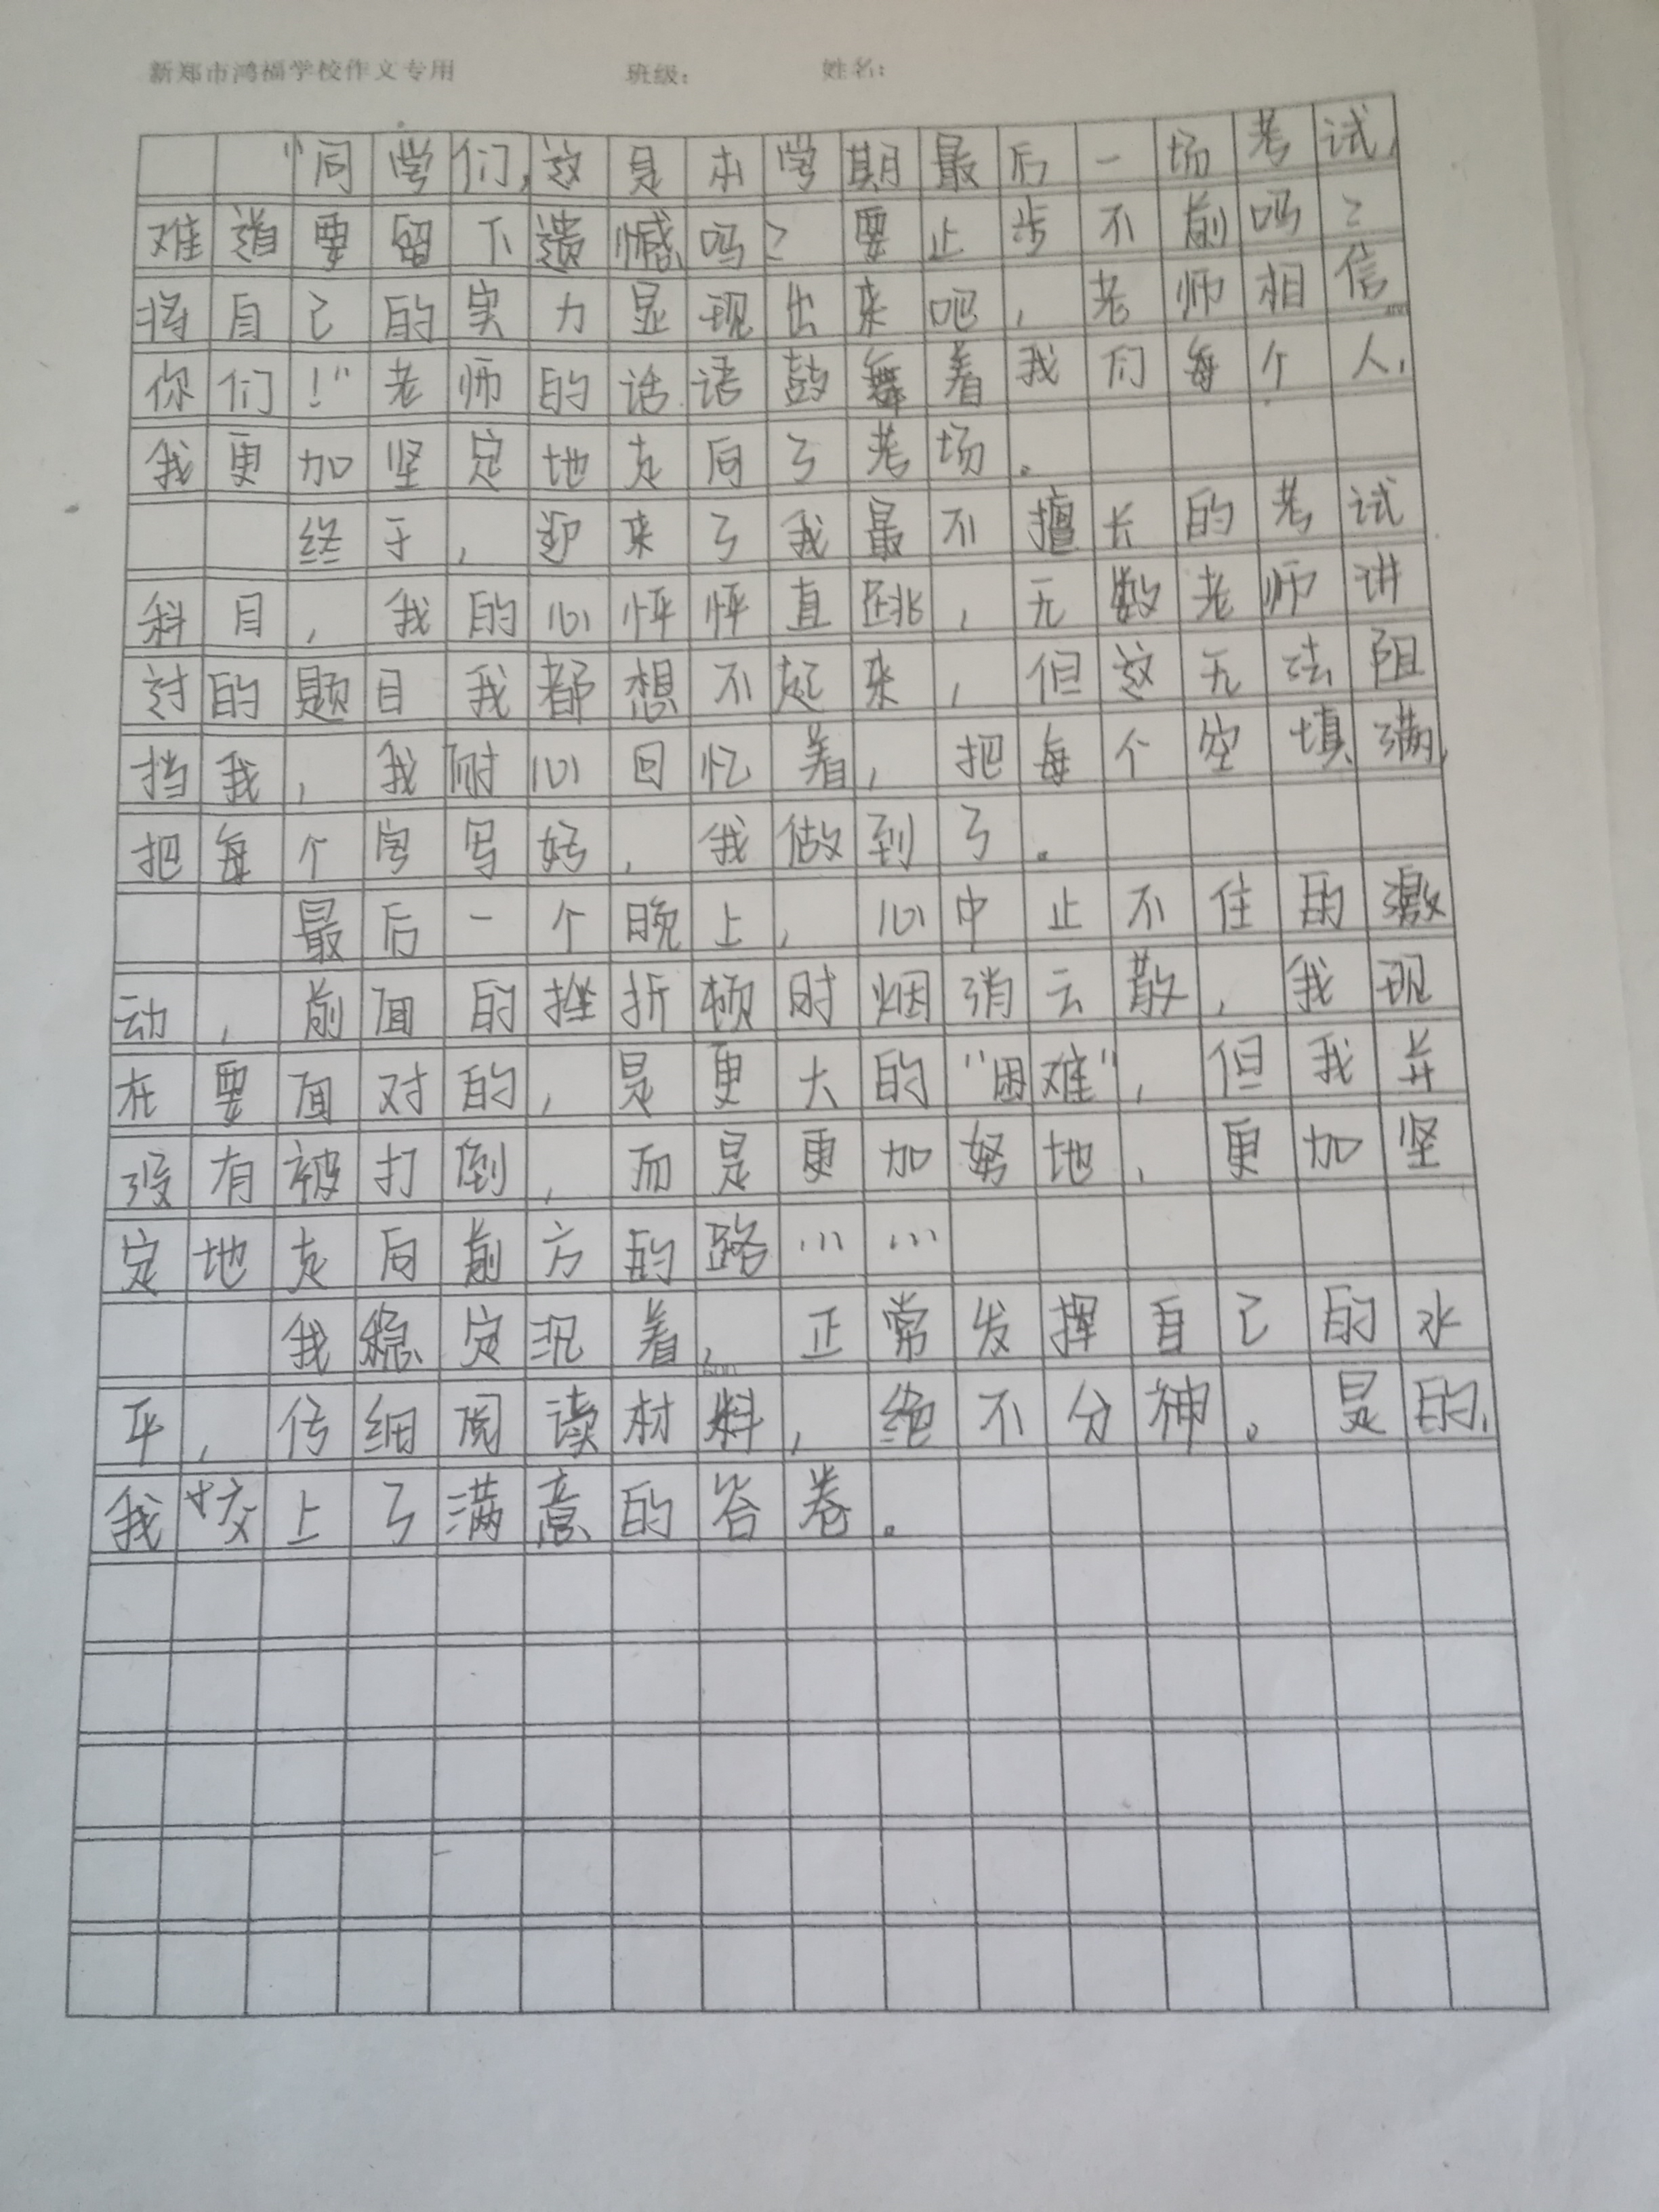 新郑市鸿福学校作文专用 班级: 姓名:
“同学们,这是本学期最后一场考试,
难道要留下遗憾吗?要止步不前吗?
将自己的实力显现出来吧,老师相信
你们!”老师的话语鼓舞着我们每个人,
我更加坚定地走向了考场。
终于,迎来了我最不擅长的考试
科目,我的心怦怦直跳,无数老师讲
过的题目我都想不起来,但这无法阻
挡我,我耐心回忆着,把每个空填满,
把每个字写好,我做到了。
最后一个晚上,心中止不住的激
动,前面的挫折顿时烟消云散,我现
在要面对的,是更大的“困难”,但我并
没有被打倒,而是更加努地,更加坚
定地走向前方的路……
我稳定沉着,正常发挥自己的水
平,仔细阅读材料,绝不分神。是的,
我交上了满意的答卷。